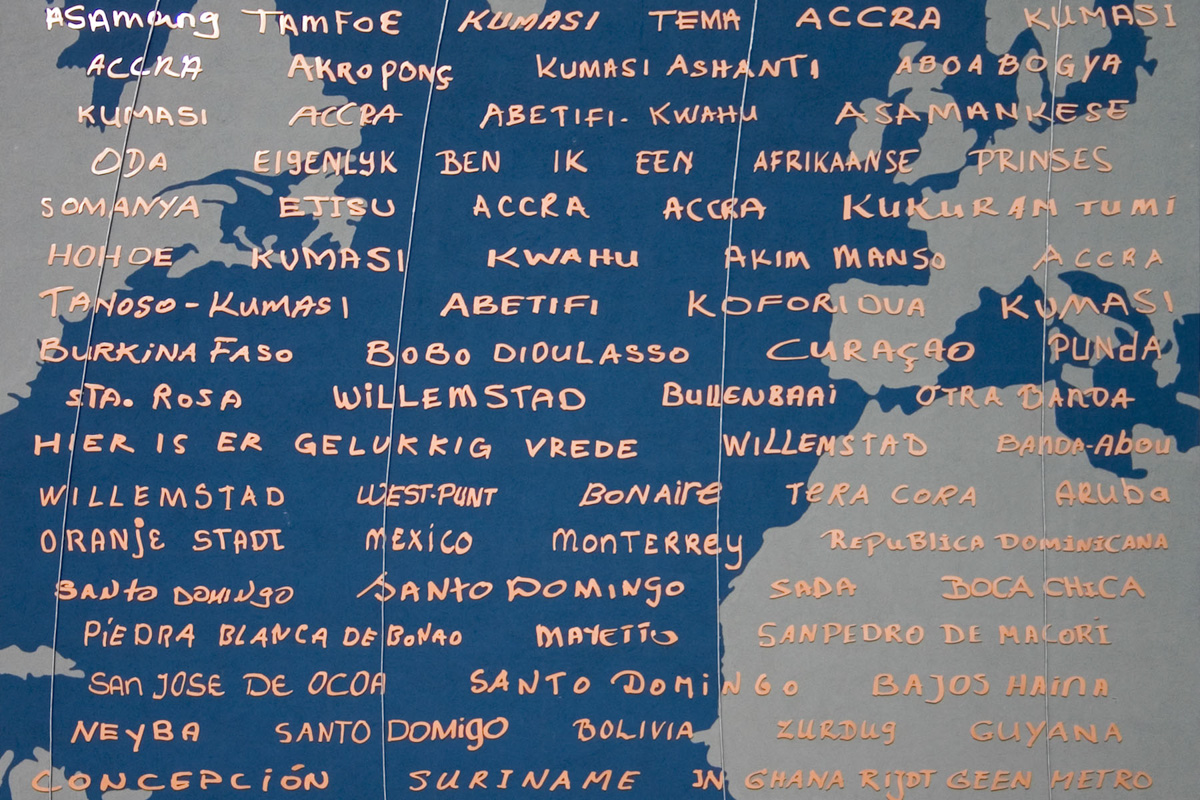 ASAMANG TAMFOE KUMASI TEMA ACCRA KUMASI
ACCRA AKROPONG KUMASI ASHANTI ABOABOGYA
KUMASI ACCRA ABETIFI- KWAHU ASAMANKESE
ODA EIGENLYK BEN IK EEN AFRIKAANSE PRINSES
SOMANYA EJISU ACCRA ACCRA KUKURANTUMI
HOHOE KUMASI KWAHU AKIM MANSO ACCRA
TANOSO-KUMASI ABETIFI KOFORIDUA KUMASI
BURKINA FASO BOBO DIDULASSO CURAÇAO PUNDA
STA. ROSA WILLEMSTAD BULLENBAAI OTRA BANDA
HIER IS ER GELUKKIG VREDE WILLEMSTAD BANDA-ABOU
WILLEMSTAD WEST-PUNT BONAIRE TERA CORA ARUBA
ORANJE STADT MEXÍCO MONTERREY REPUBLICA DOMINICANA
SANTO DOMINGO SANTO DOMINGO SADA BOCA CHICA
PIEDRA BLANCA DE BONAO MAYETTO SANPEDRO DE MACORÍ
SAN JOSE DE OCOA SANTO DOMINGO BAJOS HAINA
NEYBA SANTO DOMIGO BOLIVIA ZURDUG GUYANA
CONCEPCIÓN SURINAME IN GHANA RIJDT GEEN METRO